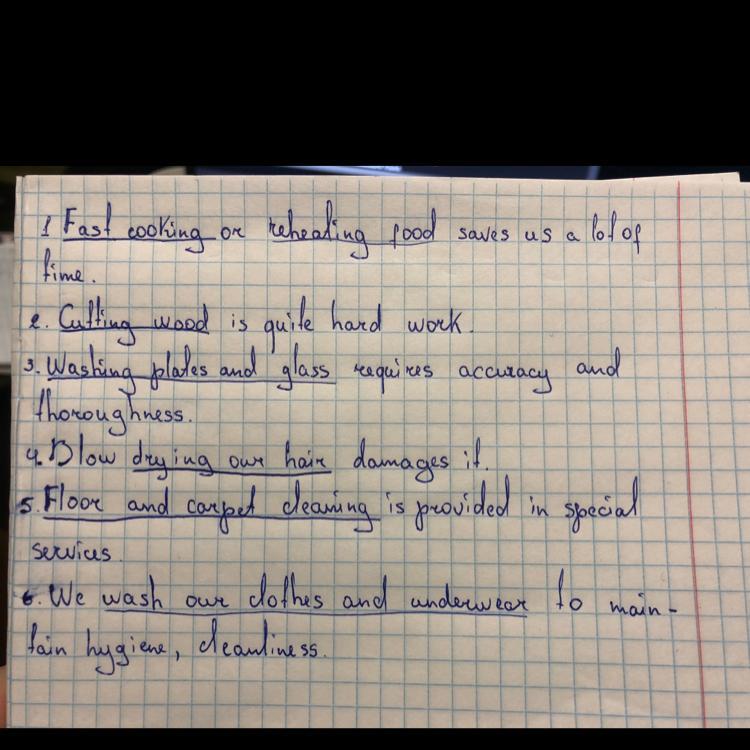 1 Fast cooking or reheating food saves us a lot of
time.
2. Cutting wood is quite hard work.
3. Washing plates and glass requires accuracy and
thoroughness.
4. Blow drying our hair damages it.
5. Floor and carpet cleaning is provided in special
services.
6. We wash our clothes and underwear to main-
tain hygiene, cleanliness.